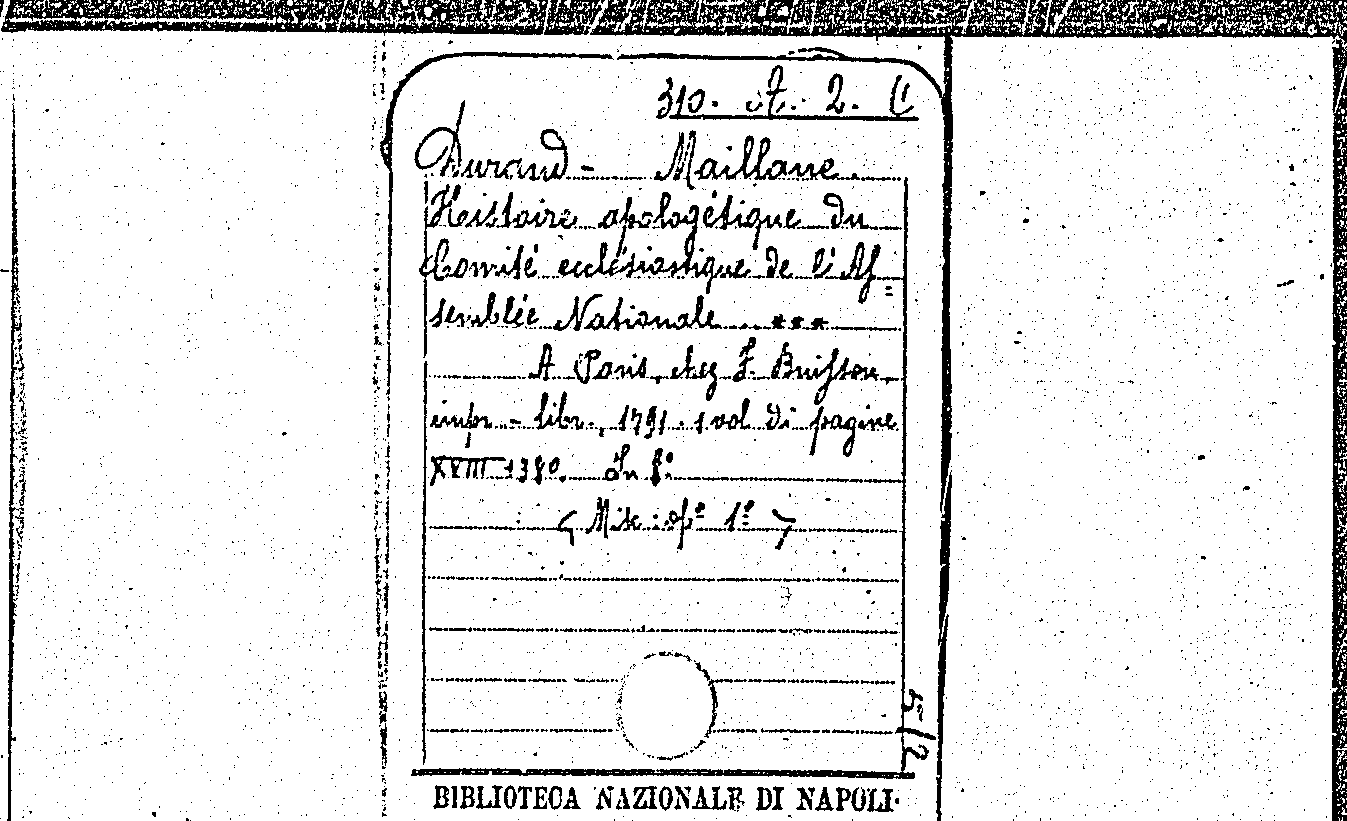 310. A. 2. (1
Durand - Maillane.
Histoire apologétique du
Comité ecclésiastique de l'As=
semblée Nationale ... ***
A Paris, chez F. Buisson,
impr. - libr., 1791. 1 vol di pagine
XVIII 1380. In 8°
( Misc: op° 1° )
5/2
BIBLIOTECA NAZIONALE DI NAPOLI